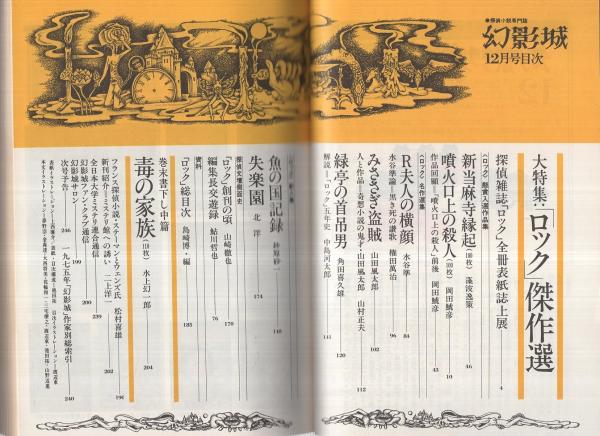 ●探偵小説専門誌
幻影城
12月号目次
大特集:「ロック」傑作選
探偵雑誌「ロック」全冊表紙誌上展 4
〈ロック〉懸賞入選作品集
新当麻寺縁起(100枚) 藻波逸策 46
噴火口上の殺人(80枚) 岡田鯱彦 10
作品回顧=「噴火口上の殺人」前後 岡田鯱彦 43
〈ロック〉名作選集
R夫人の横顔 水谷準 84
水谷準論=黒き死の讃歌 権田萬治 96
みささぎ盗賊 山田風太郎 102
人と作品=奇想小説の鬼才・山田風太郎 山村正夫 112
緑亭の首吊男 角田喜久雄 120
解説=「ロック」五年史 中島河太郎 141
魚の国記録 148
失楽園 北洋 174
探偵文壇側面史
「ロック」創刊の頃 山崎徹也 170
編集長交遊録 鮎川哲也 76
資料
「ロック」総目次 島崎博・編 185
巻末書下し中篇
毒の家族(110枚) 水上幻一郎 204
フランス探偵小説=ステーマン=ウェンズ氏 松村喜雄 196
新刊紹介=ミステリ館への誘い 二上洋一 202
全日本大学ミステリ連合通信 239
幻影城ファン・クラブ通信 200
幻影城サロン 199
次号予告 246
一九七五年「幻影城」作家別総索引 240